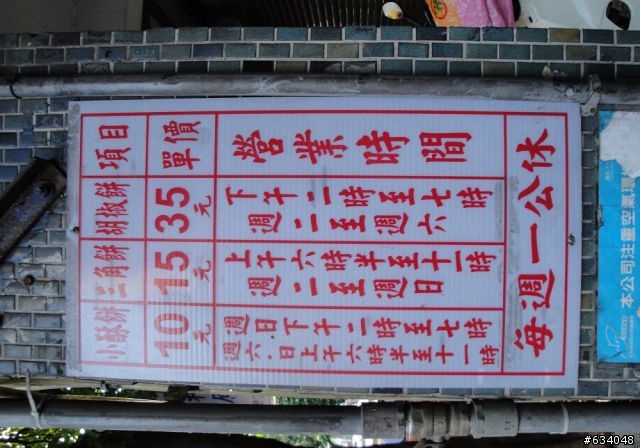 項目
單價
營業時間
胡椒餅
35元
下午二時至七時
週二至週六
三角餅
15元
上午六時半至十一時
週二至週日
小酥餅
10元
週日下午二時至七時
週六.日上午六時半至十一時
每週一公休
本公司注重空氣環
#634048